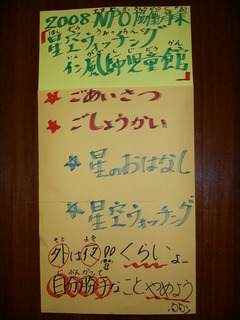 2008 NPO協働事業
「星空ウォッチング
in 風師児童館」
★ごあいさつ
★ごしょうかい
★星のおはなし
★星空ウォッチング
外は夜 くらいよー
自分勝手なことやめよう